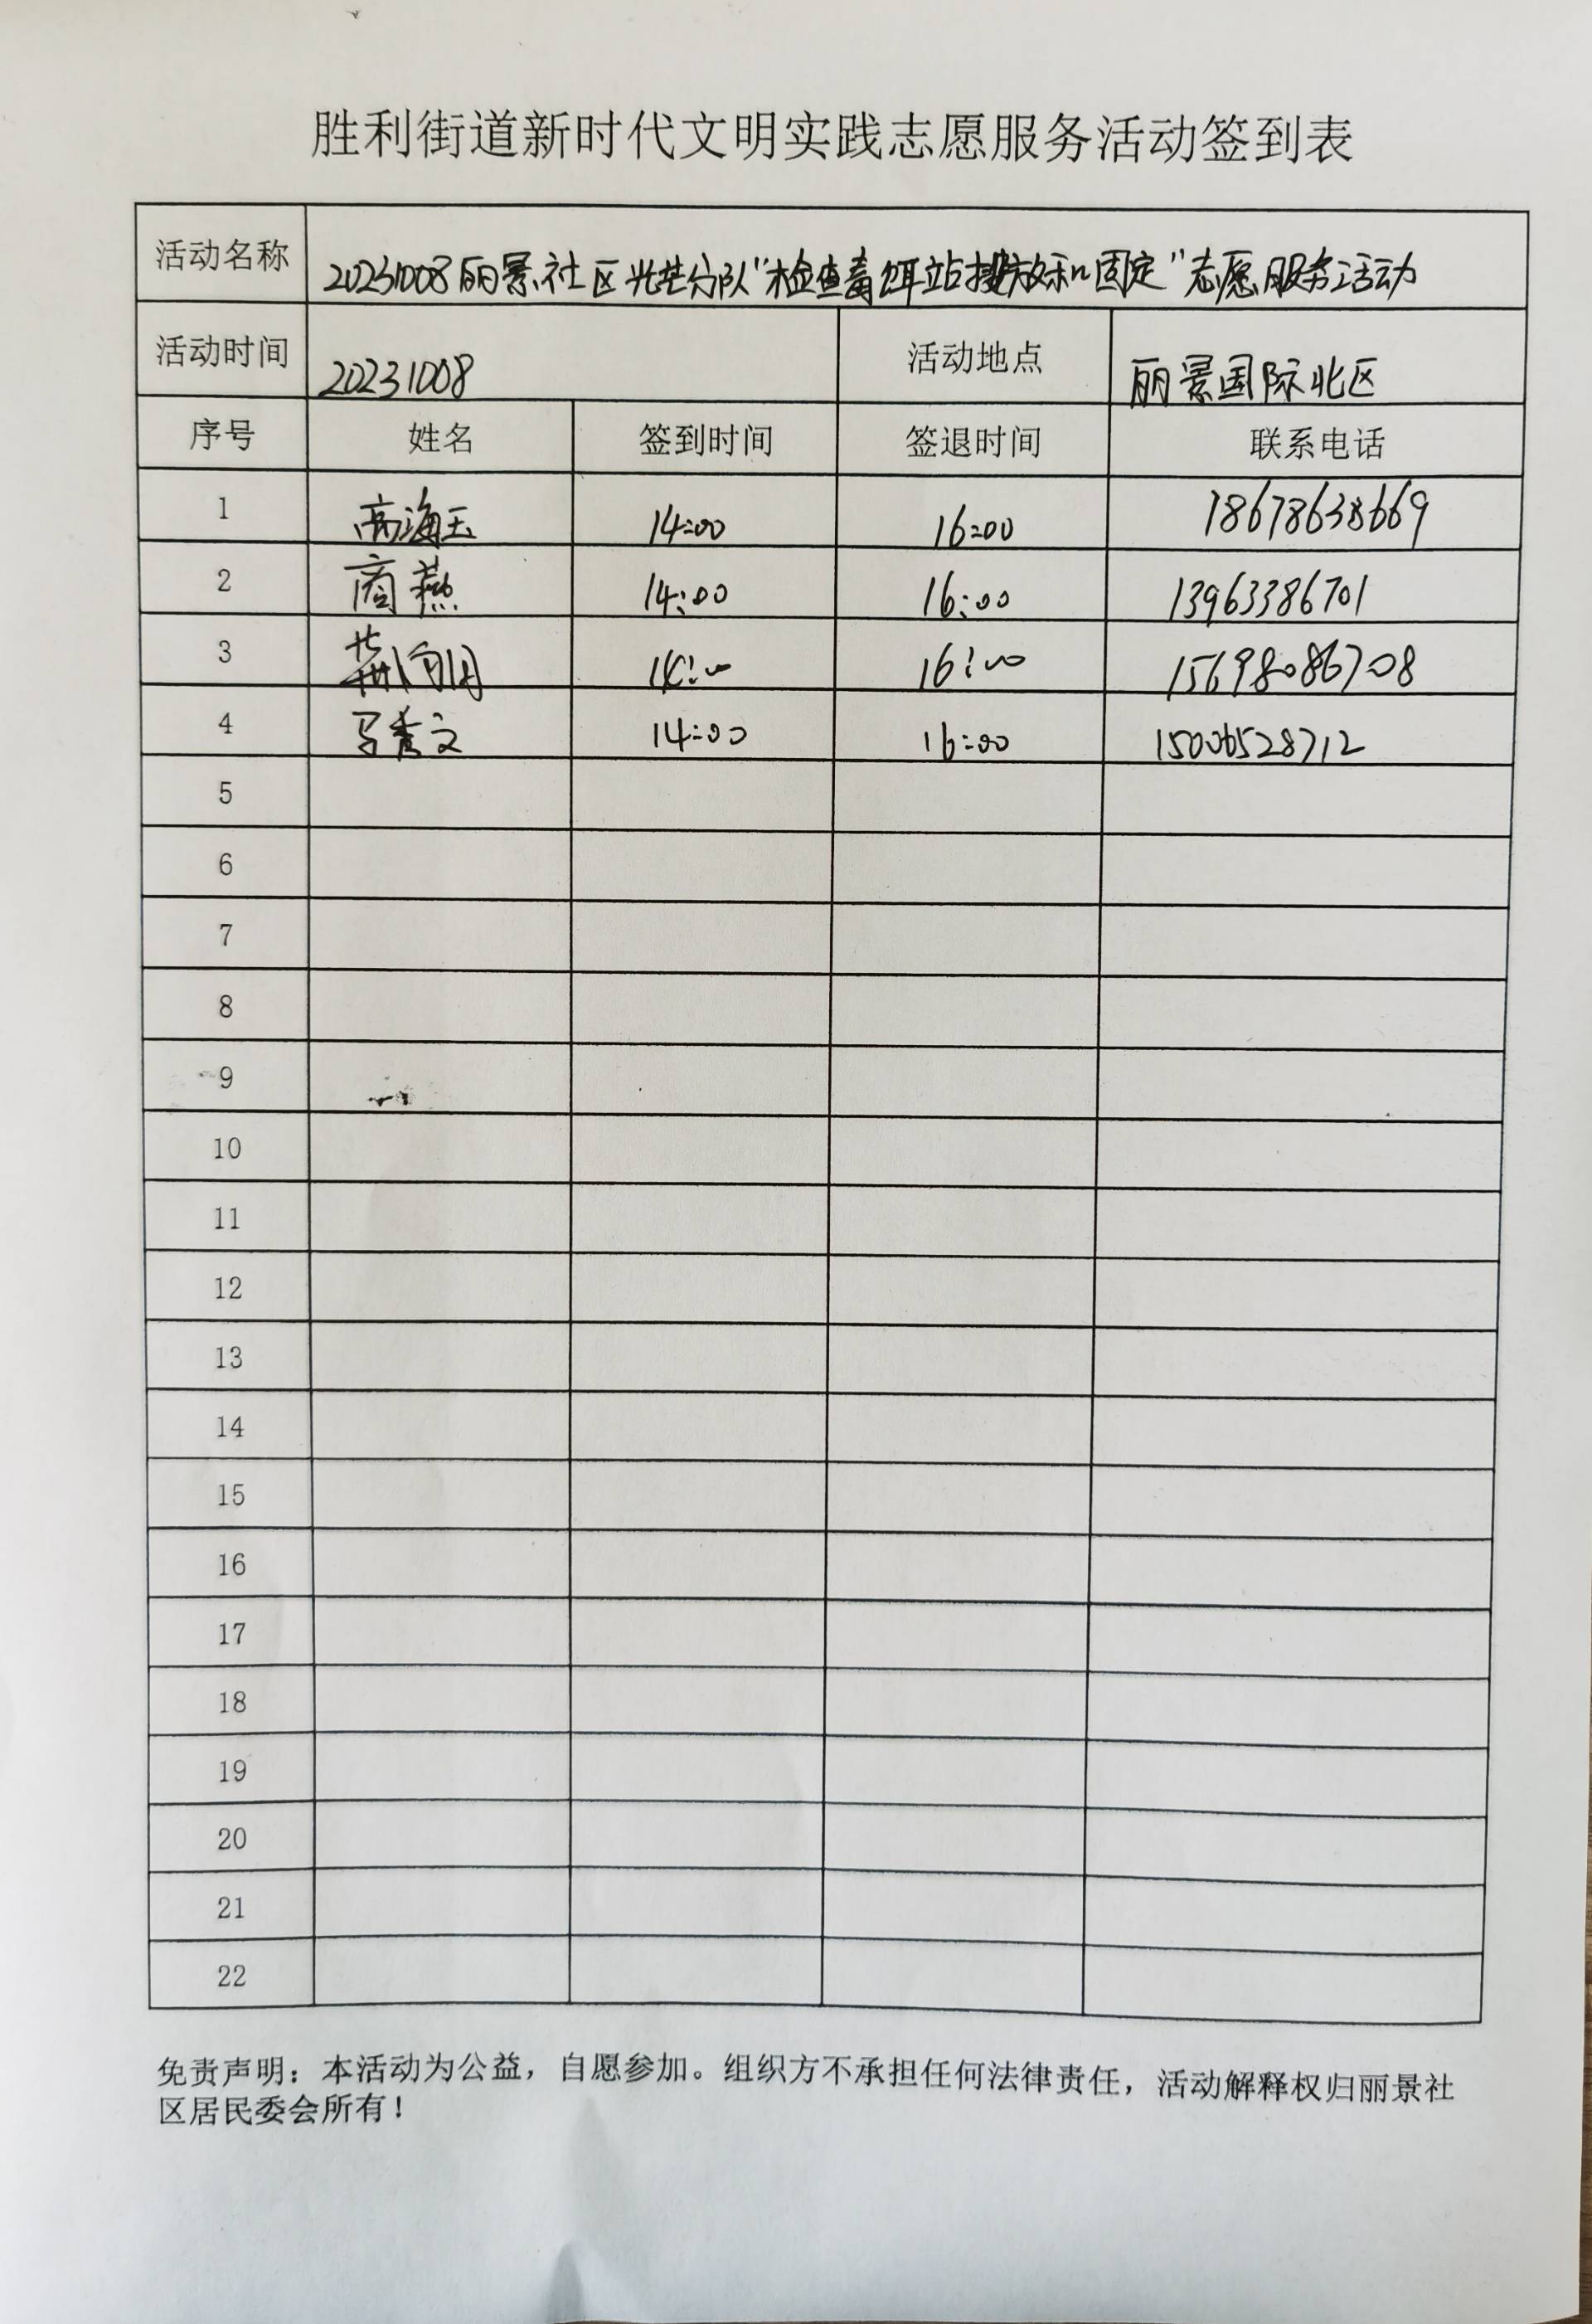 胜利街道新时代文明实践志愿服务活动签到表
活动名称 20231008丽景社区光芒分队“检查毒饵站摆放和固定”志愿服务活动
活动时间 20231008 活动地点 丽景国际北区
序号 姓名 签到时间 签退时间 联系电话
1 高海玉 14:00 16:00 18678638669
2 商燕 14:00 16:00 13963386701
3 14:00 16:00 15698086708
4 马秀文 14:00 16:00 15006528712
5
6
7
8
9
10
11
12
13
14
15
16
17
18
19
20
21
22
免责声明：本活动为公益，自愿参加。组织方不承担任何法律责任，活动解释权归丽景社
区居民委会所有！